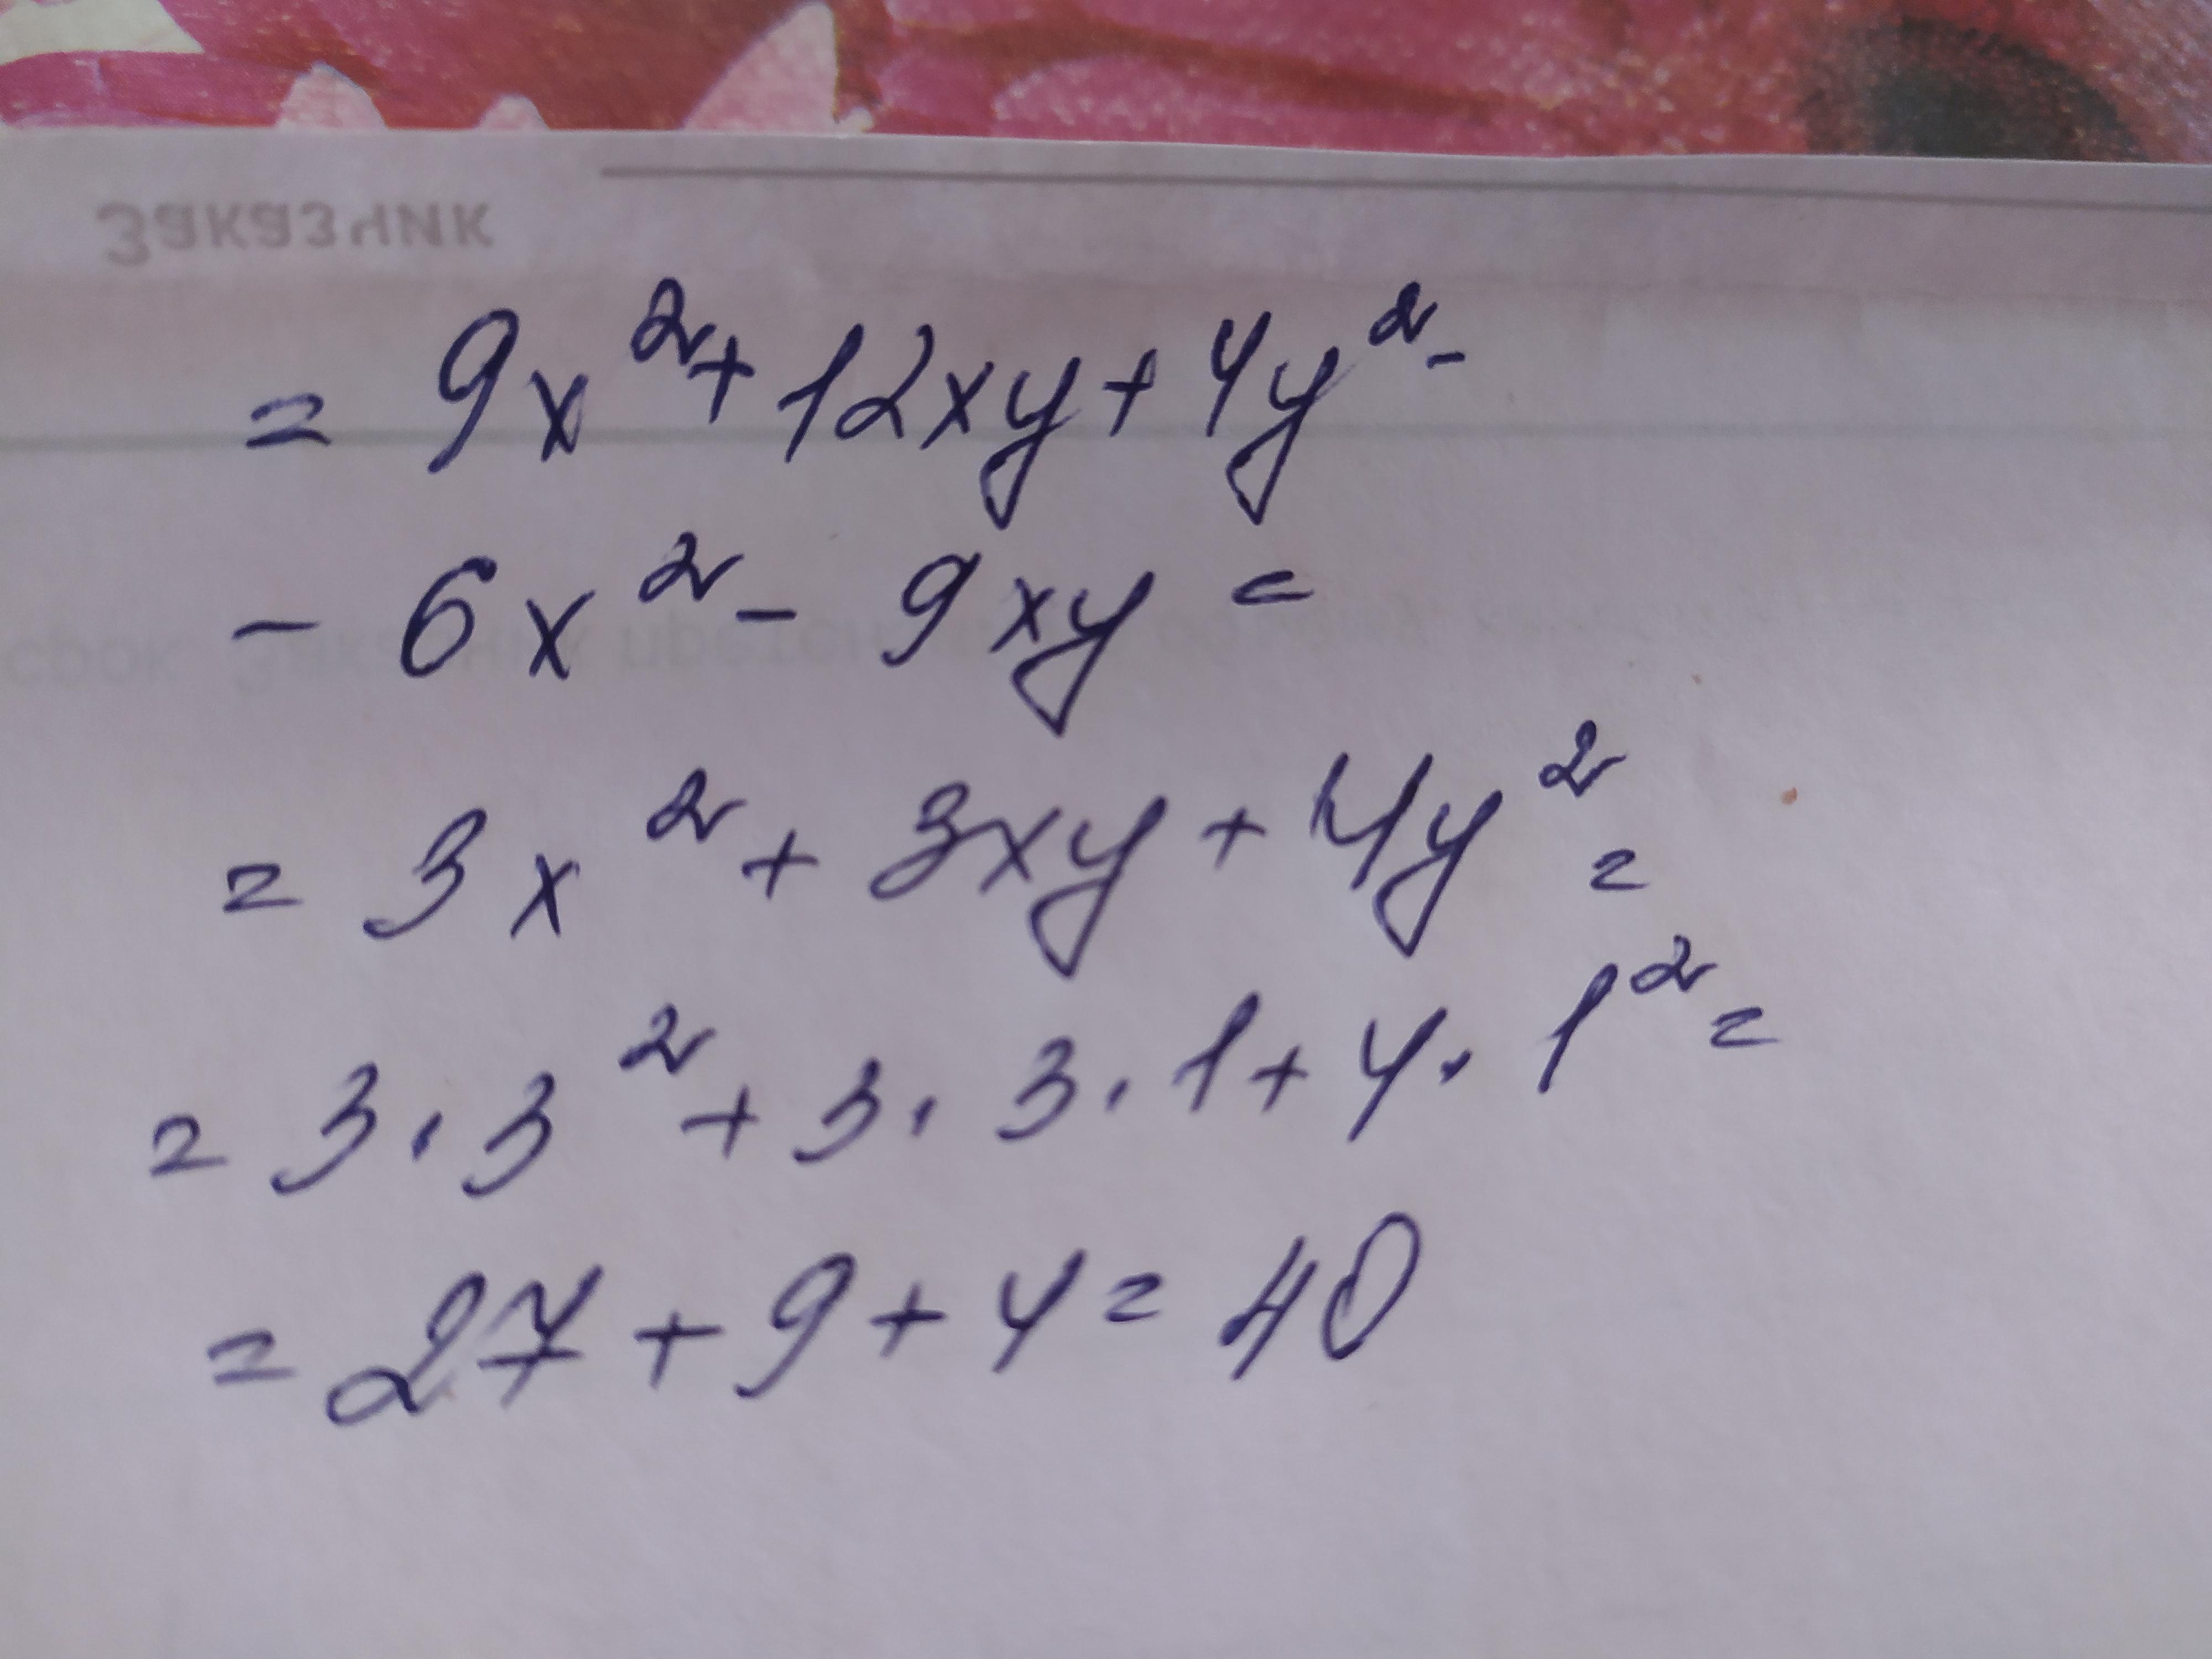 = 9x² + 12xy + 4y² -
- 6x² - 9xy =
= 3x² + 3xy + 4y² =
= 3 · 3² + 3 · 3 · 1 + 4 · 1² =
= 27 + 9 + 4 = 40